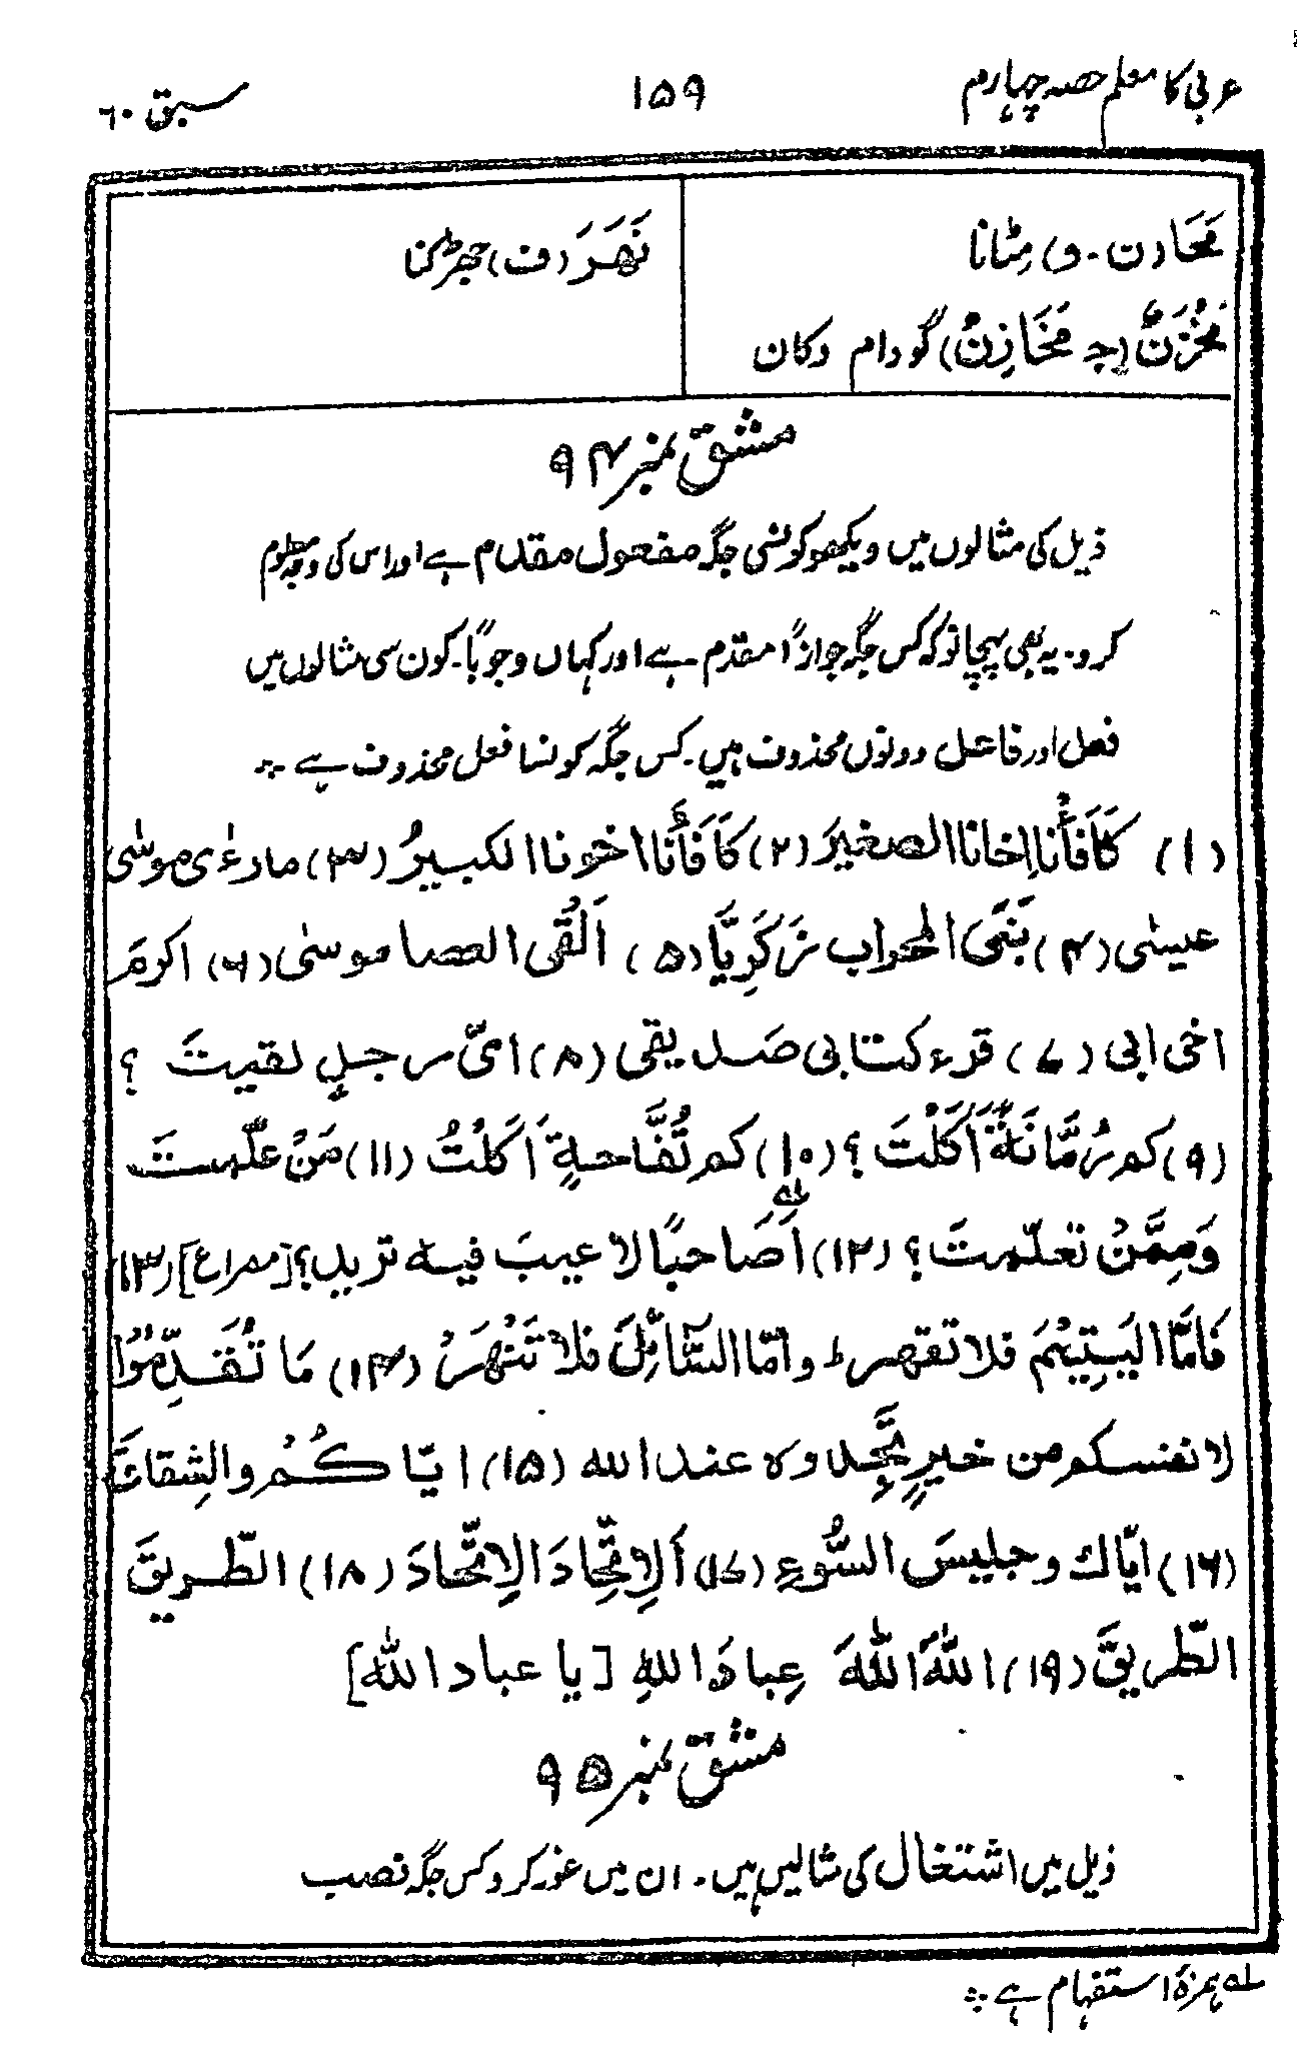 عربی کا معلم حصہ چہارم ۱۵۹ سبق ۶۰
مَحَا (ن - و) مِٹانا
مَخْزَنٌ (جـ مَخَازِنُ) گودام دکان
نَهَرَ (ف) جھڑکنا
مشق نمبر ۹۴
ذیل کی مثالوں میں دیکھو کونسی جگہ مفعول مقدم ہے اور اس کی وجہ معلوم
کرو۔ یہ بھی پہچانو کہ کس جگہ جوازًا مقدم ہے اور کہاں وجوبًا۔ کون سی مثالوں میں
فعل اور فاعل دونوں محذوف ہیں۔ کس جگہ کونسا فعل محذوف ہے ۔
(۱) كَافَأْنا اِخانا الصغيرَ (۲) كَافَأَنا اخونا الكبيرُ (۳) مارءٰى موسٰى
عيسٰى (۴) بَنَى المحراب زَكَرِيَّا (۵) اَلْقٰى العصا موسٰى (۶) اكرمَ
اخى ابى (۷) قرء كتابى صَديقى (۸) اىَّ رجلٍ لقيتَ ؟
(۹) كم رُمَّانَةً اَكَلْتَ ؟ (۱۰) كم تُفَّاحةٍ اَكَلْتُ (۱۱) مَنْ علّمتَ
وَمِمَّنْ تعلّمتَ ؟ (۱۲) اَصَاحبًا لا عيبَ فيه تريد ؟ [مصراع] (۱۳)
فَامَّا الْيَتِيْمَ فلا تقهرط وامّا السَّآئِلَ فلا تَنْهَرْ (۱۴) مَا تُقَدِّمُوْا
لانفسكم من خيرٍ تَجِدوه عند الله (۱۵) ايّاكُمْ والشِقاقَ
(۱۶) ايّاك وجليسَ السُّوءِ (۱۷) اَلاِتِّحادَ الاِتِّحادَ (۱۸) الطّريقَ
الطّريقَ (۱۹) اللّٰهَ اللّٰهَ عِبادَ اللهِ [يا عباد اللّٰه]
مشق نمبر ۹۵
ذیل میں اشتغال کی مثالیں ہیں۔ ان میں غور کرو کس جگہ نصب
لہ ہمزۂ استفہام ہے ۔